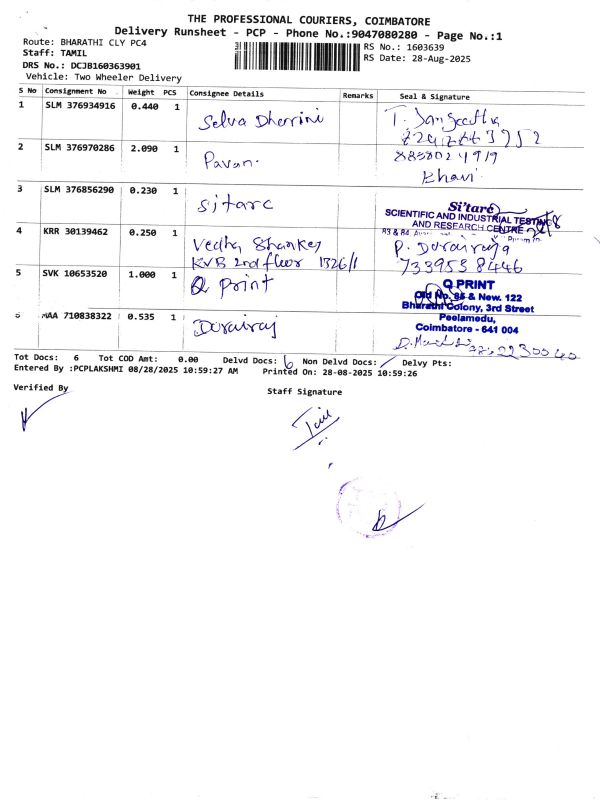 THE PROFESSIONAL COURIERS, COIMBATORE
Delivery Runsheet - PCP - Phone No.:9047080280 - Page No.:1
Route: BHARATHI CLY PC4
RS No.: 1603639
Staff: TAMIL
RS Date: 28-Aug-2025
DRS No.: DCJB160363901
Vehicle: Two Wheeler Delivery
S No Consignment No Weight PCS Consignee Details Remarks Seal & Signature
1 SLM 376934916 0.440 1 Selva Dharrini T. Sangeetha
2 SLM 376970286 2.090 1 Pavan.
3 SLM 376856290 0.230 1 Sitarc
Si'tarc
SCIENTIFIC AND INDUSTRIAL TESTING
AND RESEARCH CENTRE
83 & 84,
4 KRR 30139462 0.250 1 Vedha Shankey P. Durairaja
KVB 2nd floor 1326/1 7339538446
5 SVK 10653520 1.000 1 Q Print
Q PRINT
Old No. & New. 122
Bharathi Colony, 3rd Street
Peelamedu,
Coimbatore - 641 004
MAA 710838322 0.535 1 Durairaj
Tot Docs: 6 Tot COD Amt: 0.00 Delvd Docs: 6 Non Delvd Docs: / Delvy Pts:
Entered By :PCPLAKSHMI 08/28/2025 10:59:27 AM Printed On: 28-08-2025 10:59:26
Verified By
Staff Signature